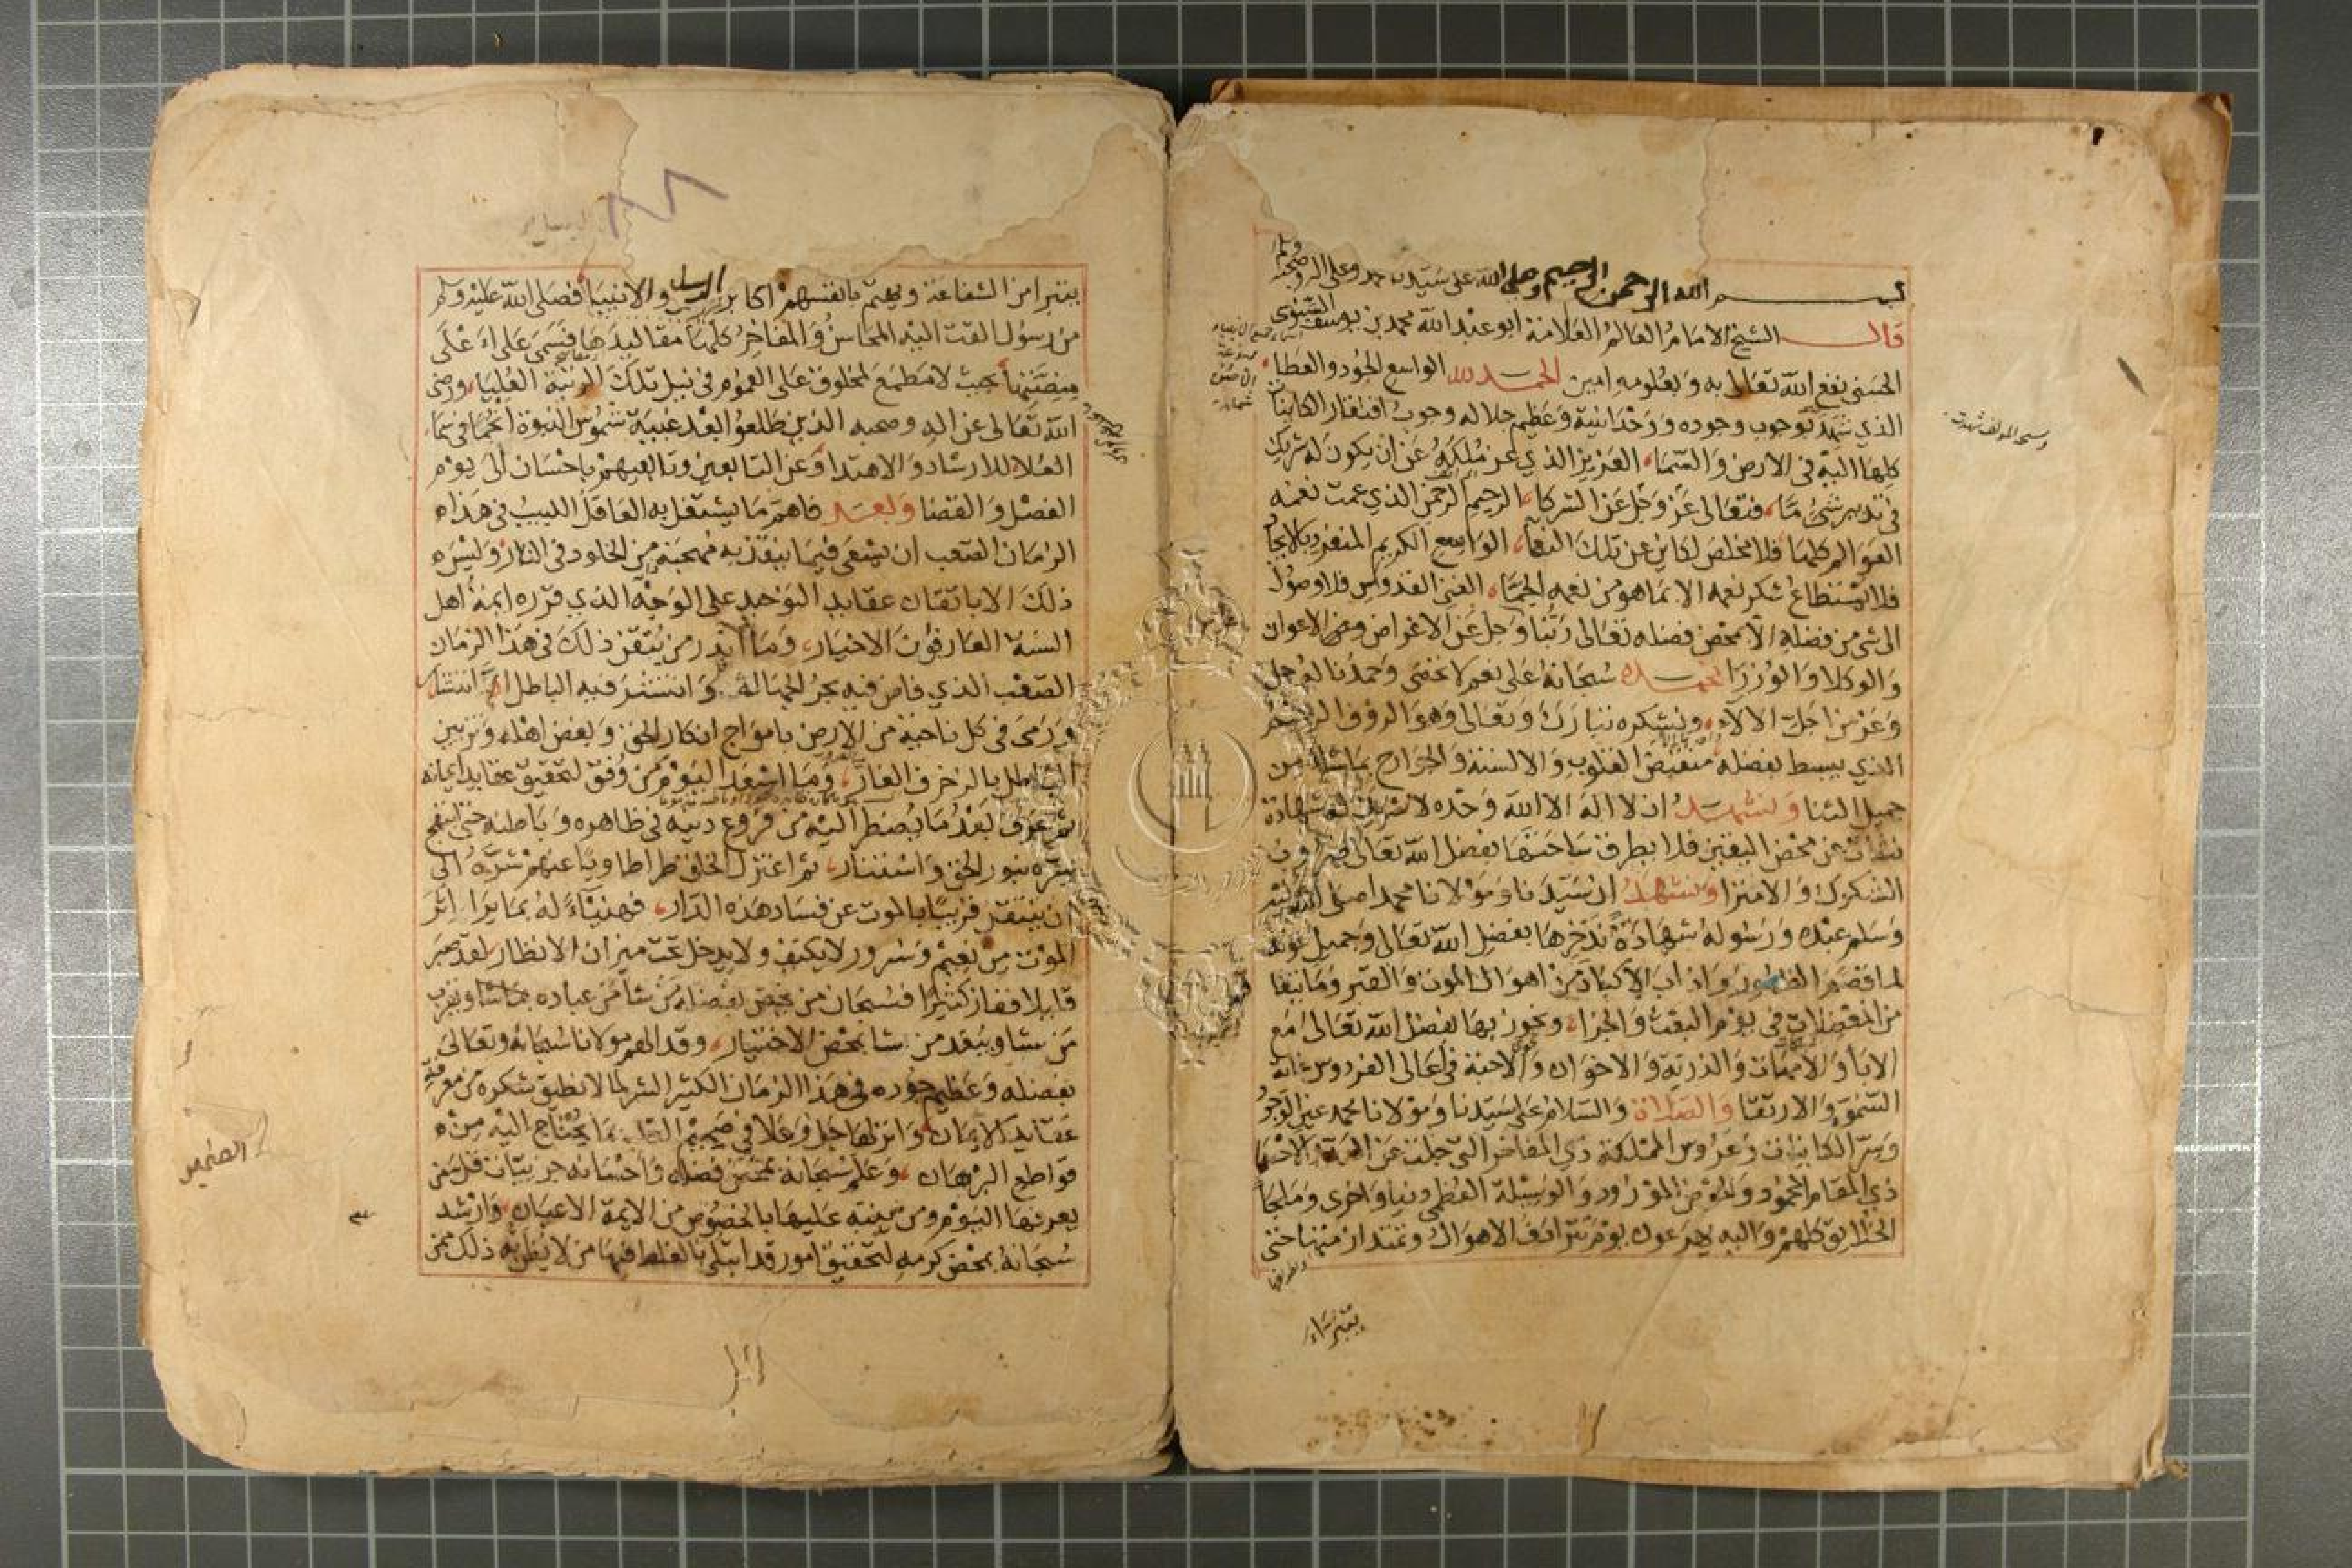 بســـــم الله الرحمن الرحيم وصلى الله على سيدنا محمد وعلى اله وصحبه وسلم
قالـــــ الشيخ الامام العالم العلامة ابو عبد الله محمد بن يوسف السنوسى
الحسنى نفع الله تعالى به وبعلومه امين الحمـــد لله الواسع الجود والعطا
الذي شهد بوجوب وجوده ووحدانيته وعظيم جلاله وجوب افتقار الكاينات
كلها اليه في الارض والسما، العزيز الذي عز ملكه عن ان يكون له شريك
في تدبير شئ ما، فتعالى عز وجل عن الشركا، الرحيم الرحمن الذي عمت نعمه
العوالم كلها فلا مخلص لكاين عن تلك النعما، الواسع الكريم المنفرد بالايجا
فلا يستطاع شكر نعمه الا بما هو من نعمه الجما، الغني القدوس فلا وصول
الى شى من فضله الا بمحض فضله تعالى ربنا وجل عن الاغراض وعن الاعوان
والوكلا والوزرا نحمـــده سبحانه على نعم لا تحصى وحمدنا له جل
وعز من اجل الالاء، ونشكره تبارك وتعالى وهو الرؤف الرحيم
الذي يبسط بفضله منقبض القلوب والالسنة والجوارح بما شاء من
جميل الثنا ونشهـــد ان لا اله الا الله وحده لا شريك له شهادة
نشات عن محض اليقين فلا يطرق ساحتها بفضل الله تعالى ضروب
الشكوك والامترا ونشهد ان سيدنا ومولانا محمدا صلى الله عليه
وسلم عبده ورسوله شهادة ندخرها بفضل الله تعالى وجميل عونه
لما قصم الظهور واذاب الاكباد من اهوال الموت والقبر وما يتبعها
من المعضلات في يوم البعث والجزاء، ونجوز بها بفضل الله تعالى مع
الابا والامهات والذرية والاخوان والاحبة في اعالى الفردوس غاية
السمو والارتقا والصلاة والسلام على سيدنا ومولانا محمد عين الوجود
وسر الكاينات وعروس المملكة ذي المفاخر التي جلت عن العد والاحصا
ذي المقام المحمود والحوض المورود والوسيلة العظمى دنيا واخرى وملجا
الخلايق كلهم واليه يهرعون يوم تترادف الاهوال وتمتد ازمنتها حتى
يتبراء
يتبرا من الشفاعة ويهتم بانفسهم اكابر الرسل والانبيا فصلى الله عليه وسلم
من رسول القت اليه المحاسن والمفاخر كلها مقاليدها فسمى على اعلى
منصتها بحيث لا مطمع لمخلوق على العموم في نيل تلك الرتبة العليا، ورضى
الله تعالى عن اله وصحبه الذين طلعوا بعد غيبة شموس النبوة انجما في سما
العلا للارشاد والاهتدا وعن التابعين وتابعيهم باحسان الى يوم
الفصل والقضا وبعـــد فاهم ما يشتغل به العاقل اللبيب في هذا
الزمان الصعب ان يسعى فيما ينقذ به مهجته من الخلود في النار وليس
ذلك الا باتقان عقايد التوحيد على الوجه الذي قرره ايمة اهل
السنة العارفون الاخيار، وما اندر من يتقن ذلك في هذا الزمان
الصعب الذي فاض فيه بحر الجهالة وانتشر فيه الباطل اي انتشار
ورمى في كل ناحية من الارض بامواج انكار الحق وبغض اهله وتزيين
الباطل بالزخرف الغار، وما اسعد اليوم من وفق لتحقيق عقايد ايمانه
ثم عرف بعد ما يضطر اليه من فروع دينه في ظاهره وباطنه حتى ابتهج
سره بنور الحق واستنار، ثم اعتزل الخلق طرا طاويا عنهم شره الى
ان ينتقل قريبا بالموت عن فساد هذه الدار، فهنيئا له بما يرا اثر
الموت من نعيم وسرور لا يكيف ولا يدخل تحت ميزان الانظار لقد صبر
قليلا ففاز كثيرا فسبحان من يخص بفضله من شا من عباده بما شا ويقرب
من يشا ويبعد من يشا بمحض الاختيار، وقد الهم مولانا سبحانه وتعالى
بفضله وعظيم جوده في هذا الزمان الكثير الشر لما لا نطيق شكره من معرفة
عقايد الايمان وانزلها جل وعلا في صميم القلب بما يحتاج اليه من
قواطع البرهان، وعلم سبحانه بمحض فضله واحسانه جزييات قل من
يعرفها اليوم ومن ينبه عليها بالخصوص من الايمة الاعيان وارشد
سبحانه بمحض كرمه لتحقيق امور قد ابتلى بالغلط فيها من لا يظن به ذلك ممن